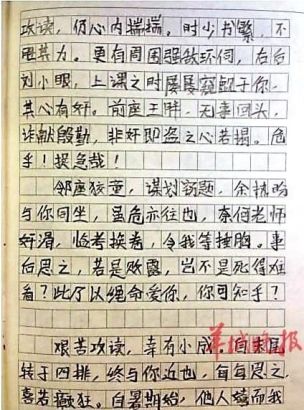 攻读，仍心内揣揣。时少书繁，不
眠其力。更有周围强敌环伺，右后
刘小眼，上课之时屡屡窥觎于你，
其心有奸。前座王胖，无事回头，
诈献殷勤，非奸即盗之心若揭。危
乎！提急哉！
邻座狡童，谋划窃题，余执
与你同坐，虽危亦往也，奈何老师
奸滑，临考换卷，令我等挫胸。事
后思之，若是败露，岂不是死得难
看？此乃以绳命爱你，你可知乎？
羊城晚报
艰苦攻读，幸有小成，自末尾
转于四排，终与你近也，每每思之，
喜若癫狂。自暑期始，他人嬉而我